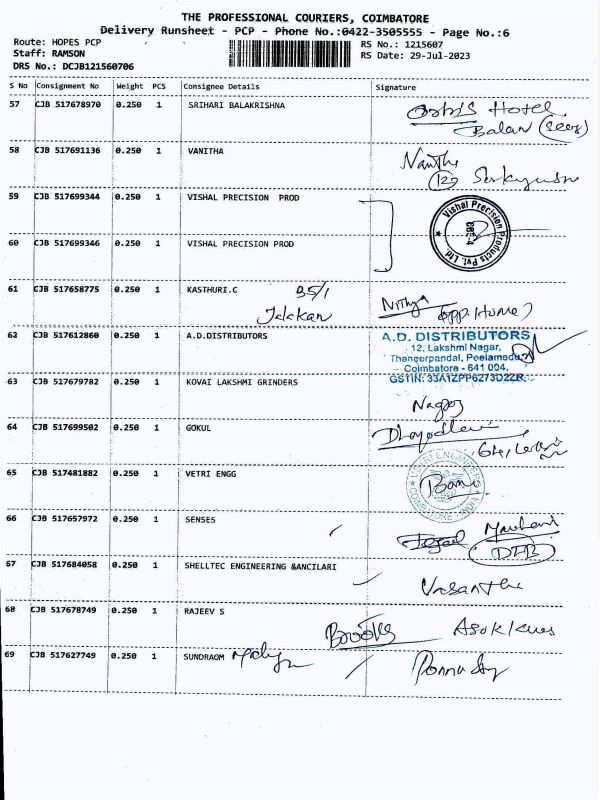 THE PROFESSIONAL COURIERS, COIMBATORE
Delivery Runsheet - PCP - Phone No.:0422-3505555 - Page No.:6
Route: HOPES PCP
RS No.: 1215607
Staff: RAMSON
RS Date: 29-Jul-2023
DRS No.: DCJB121560706
S No Consignment No Weight PCS Consignee Details Signature
57 CJB 517678970 0.250 1 SRIHARI BALAKRISHNA
Hotel
Balan
58 CJB 517691136 0.250 1 VANITHA
59 CJB 517699344 0.250 1 VISHAL PRECISION PROD
Vishal Precision Products Pvt. Ltd.
60 CJB 517699346 0.250 1 VISHAL PRECISION PROD
61 CJB 517658775 0.250 1 KASTHURI.C 35/1
Nithya
62 CJB 517612860 0.250 1 A.D.DISTRIBUTORS
A.D. DISTRIBUTORS
12, Lakshmi Nagar,
Thaneerpandal, Peelamedu,
Coimbatore - 641 004.
GSTIN: 33A1ZPP6273D2ZR
63 CJB 517679782 0.250 1 KOVAI LAKSHMI GRINDERS
64 CJB 517699502 0.250 1 GOKUL
65 CJB 517481882 0.250 1 VETRI ENGG
VETRI ENGINEERS
COIMBATORE - INDIA
66 CJB 517657972 0.250 1 SENSES
67 CJB 517684058 0.250 1 SHELLTEC ENGINEERING &ANCILARI
Vasantha
68 CJB 517678749 0.250 1 RAJEEV S
Brooks
69 CJB 517627749 0.250 1 SUNDRAOM